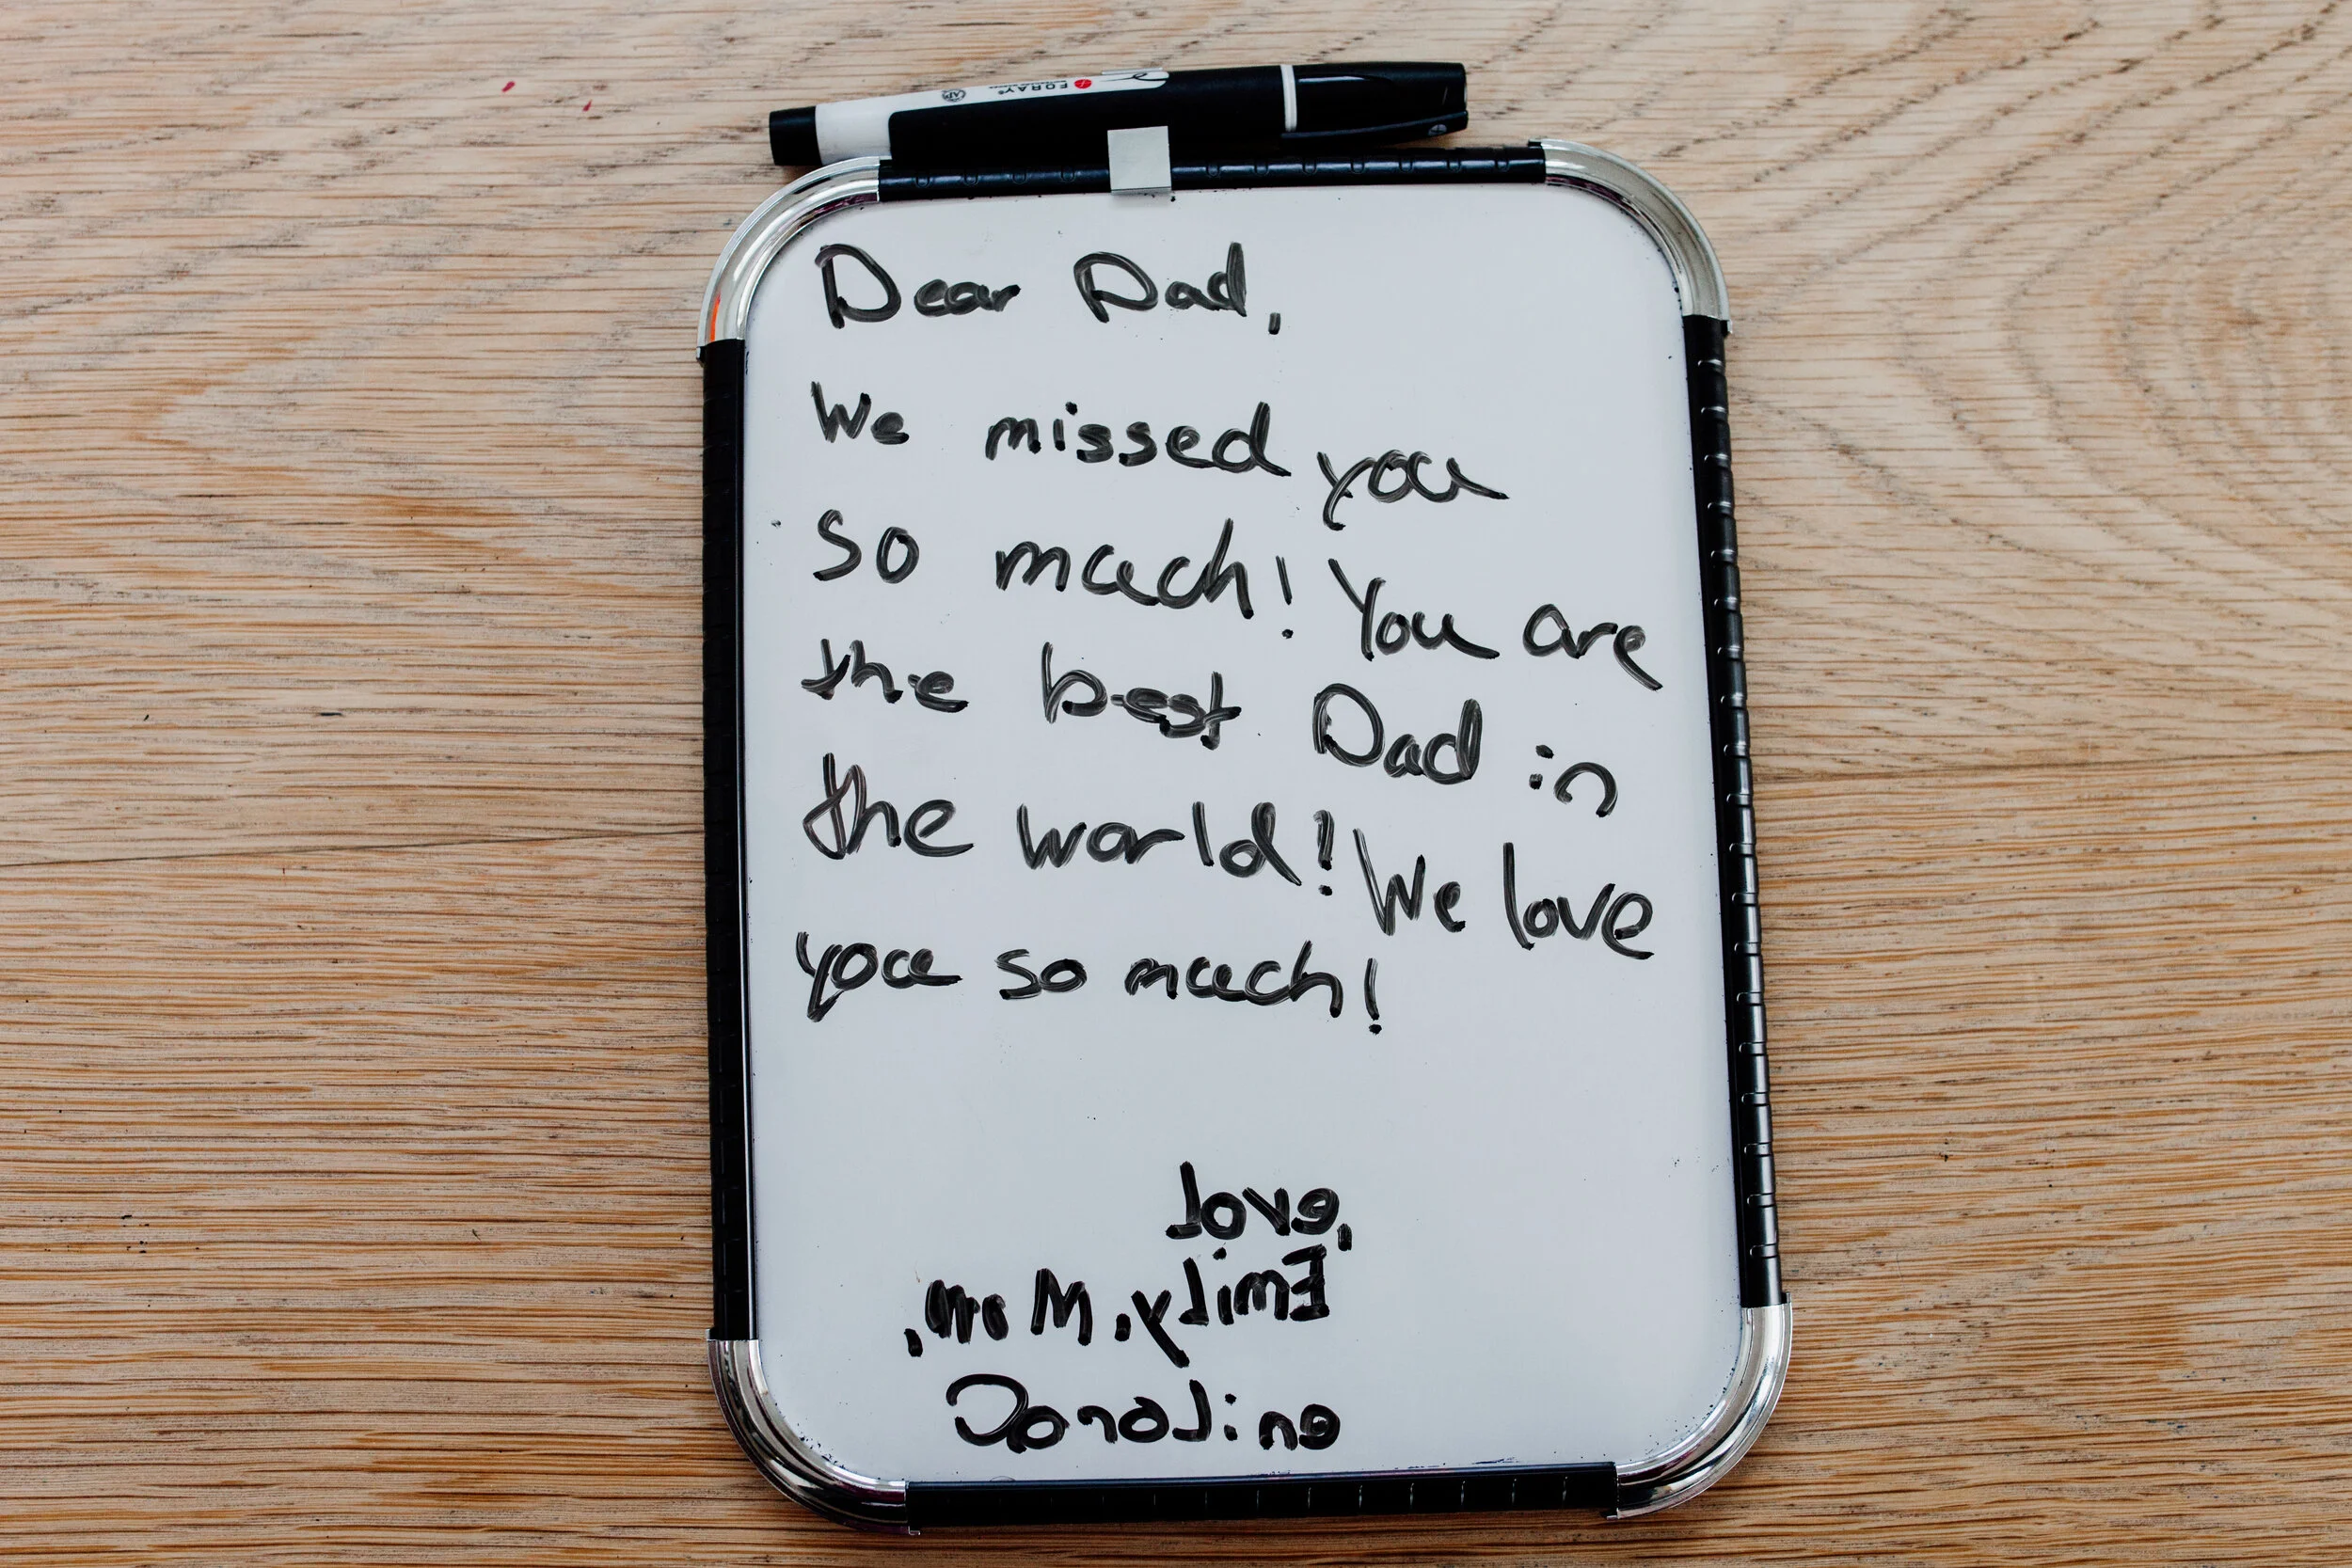 FORAY
Dear Dad,
We missed you
so much! You are
the best Dad in
the world! We love
you so much!
Love,
Emily, Mom,